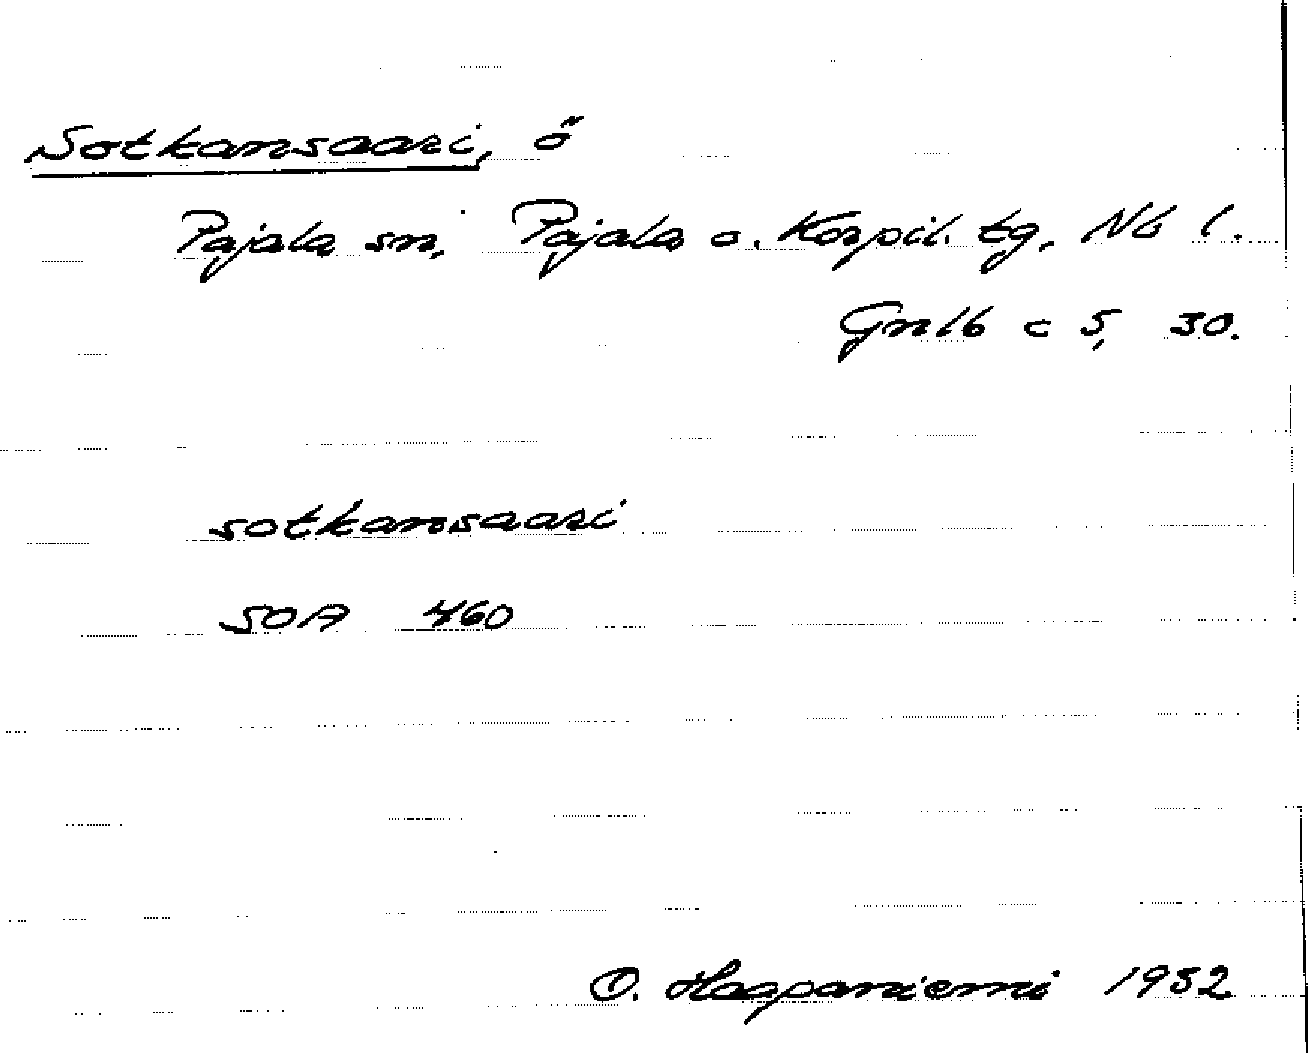 Sotkansaari, ö
Pajala sn, Pajala o. Korpil. tg, Nb l.
Grnlb c 5, 30.
sotkansaari
SOA 460
O. Haapaniemi 1932